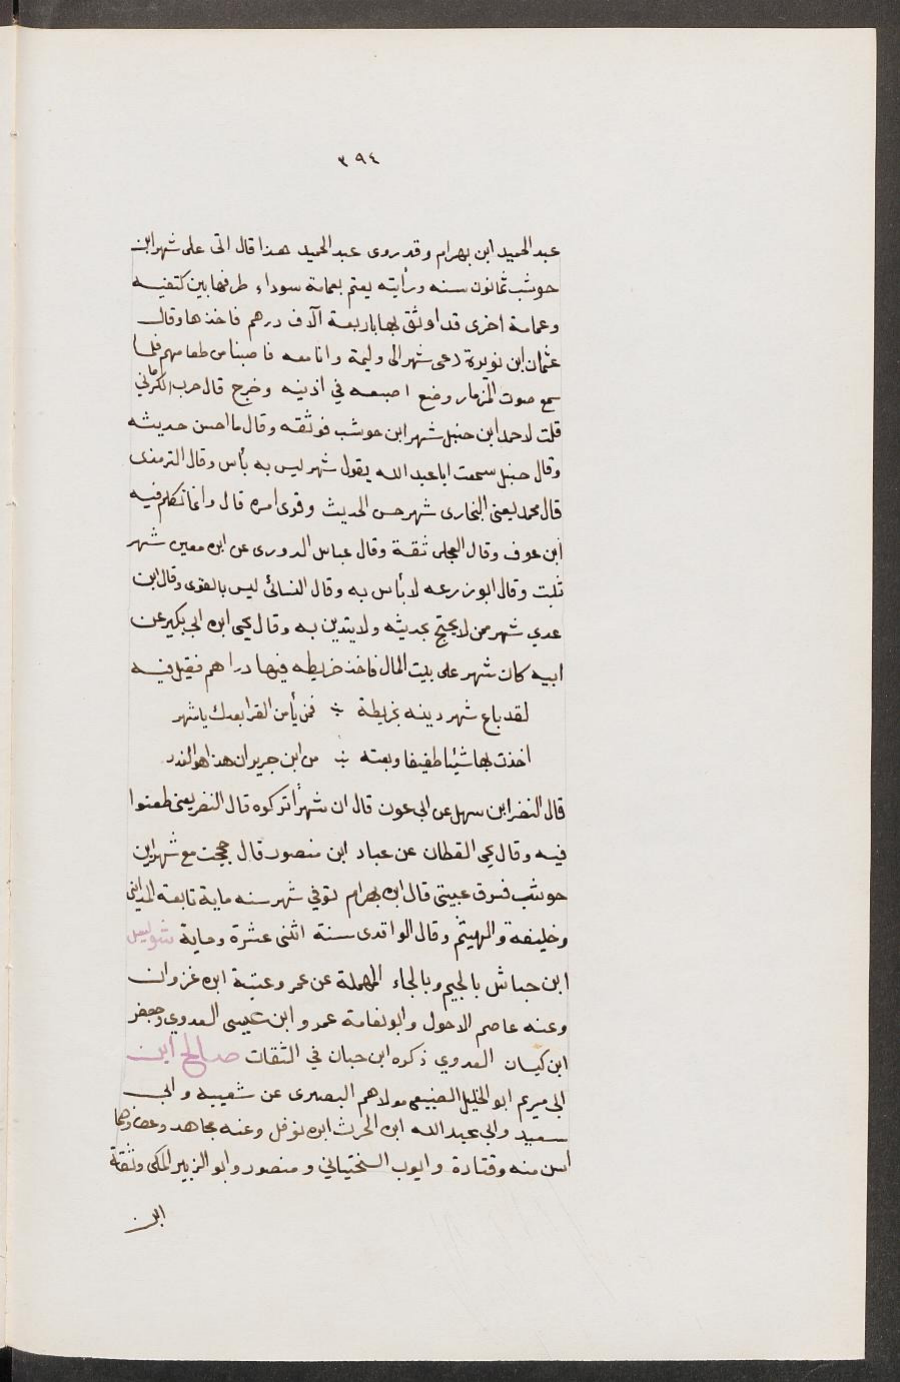 ٣٩٤
عبد الحميد ابن بهرام وقد روى عبد الحميد هذا قال اتى على شهر ابن
حوشب ثمانون سنه ورأيته يعتم بعمامة سوداء طرفها بين كتفيه
وعمامة اخرى قد اوثق بها باربعة آلاف درهم فاخذها وقال
عثمان ابن نويرة دعى شهر الى وليمة وانا معه فاصبنا من طعامهم فلما
سمع صوت المزمار وضع اصبعه في اذنيه وخرج قال حرب الكرماني
قلت لاحمد ابن حنبل شهر ابن حوشب فوثقه وقال ما احسن حديثه
وقال حنبل سمعت ابا عبد الله يقول شهر ليس به بأس وقال الترمذى
قال محمد يعنى البخارى شهر حسن الحديث وقوى امره قال وانما تكلم فيه
ابن عوف وقال العجلى ثقة وقال عباس الدورى عن ابن معين شهر
ثلبت وقال ابو زرعه لا بأس به وقال النسائى ليس بالقوى وقال ابن
عدي شهر ممن لا يحتج بحديثه ولا يتدين به وقال يحى ابن ابى بكير عن
ابيه كان شهر على بيت المال فاخذ خريطه فيها دراهم فقيل فيه
لقد باع شهر دينه بخريطة فمن يأمن القرا بعدك يا شهر
اخذت بها شيئا طفيفا وبعته من ابن جرير ان هذا هو الغدر
قال النضر ابن سهل عن ابى عون قال ان شهراً تركوه قال النضر يعنى طعنوا
فيه وقال يحى القطان عن عباد ابن منصور قال حججت مع شهر ابن
حوشب فسرق عيبتى قال ابن بهرام توفي شهر سنه ماية تابعه المداينى
وخليفه والهيثم وقال الواقدى سنة اثنى عشرة وماية شويس
ابن حباش بالجيم وبالحاء المهملة عن عمر وعتبة ابن غزوان
وعنه عاصم الاحول وابو نعامة عمرو ابن عيسى العدوي وجعفر
ابن كيسان العدوي ذكره ابن حبان في الثقات صالح ابن
ابى مريم ابو الخليل الضبيعى مولاهم البصرى عن سفينه وابى
سعيد وابى عبد الله ابن الحرث ابن نوفل وعنه مجاهد وعطا وهما
اسن منه وقتادة وايوب السختياني ومنصور وابو الزبير المكى وثقة
ابن